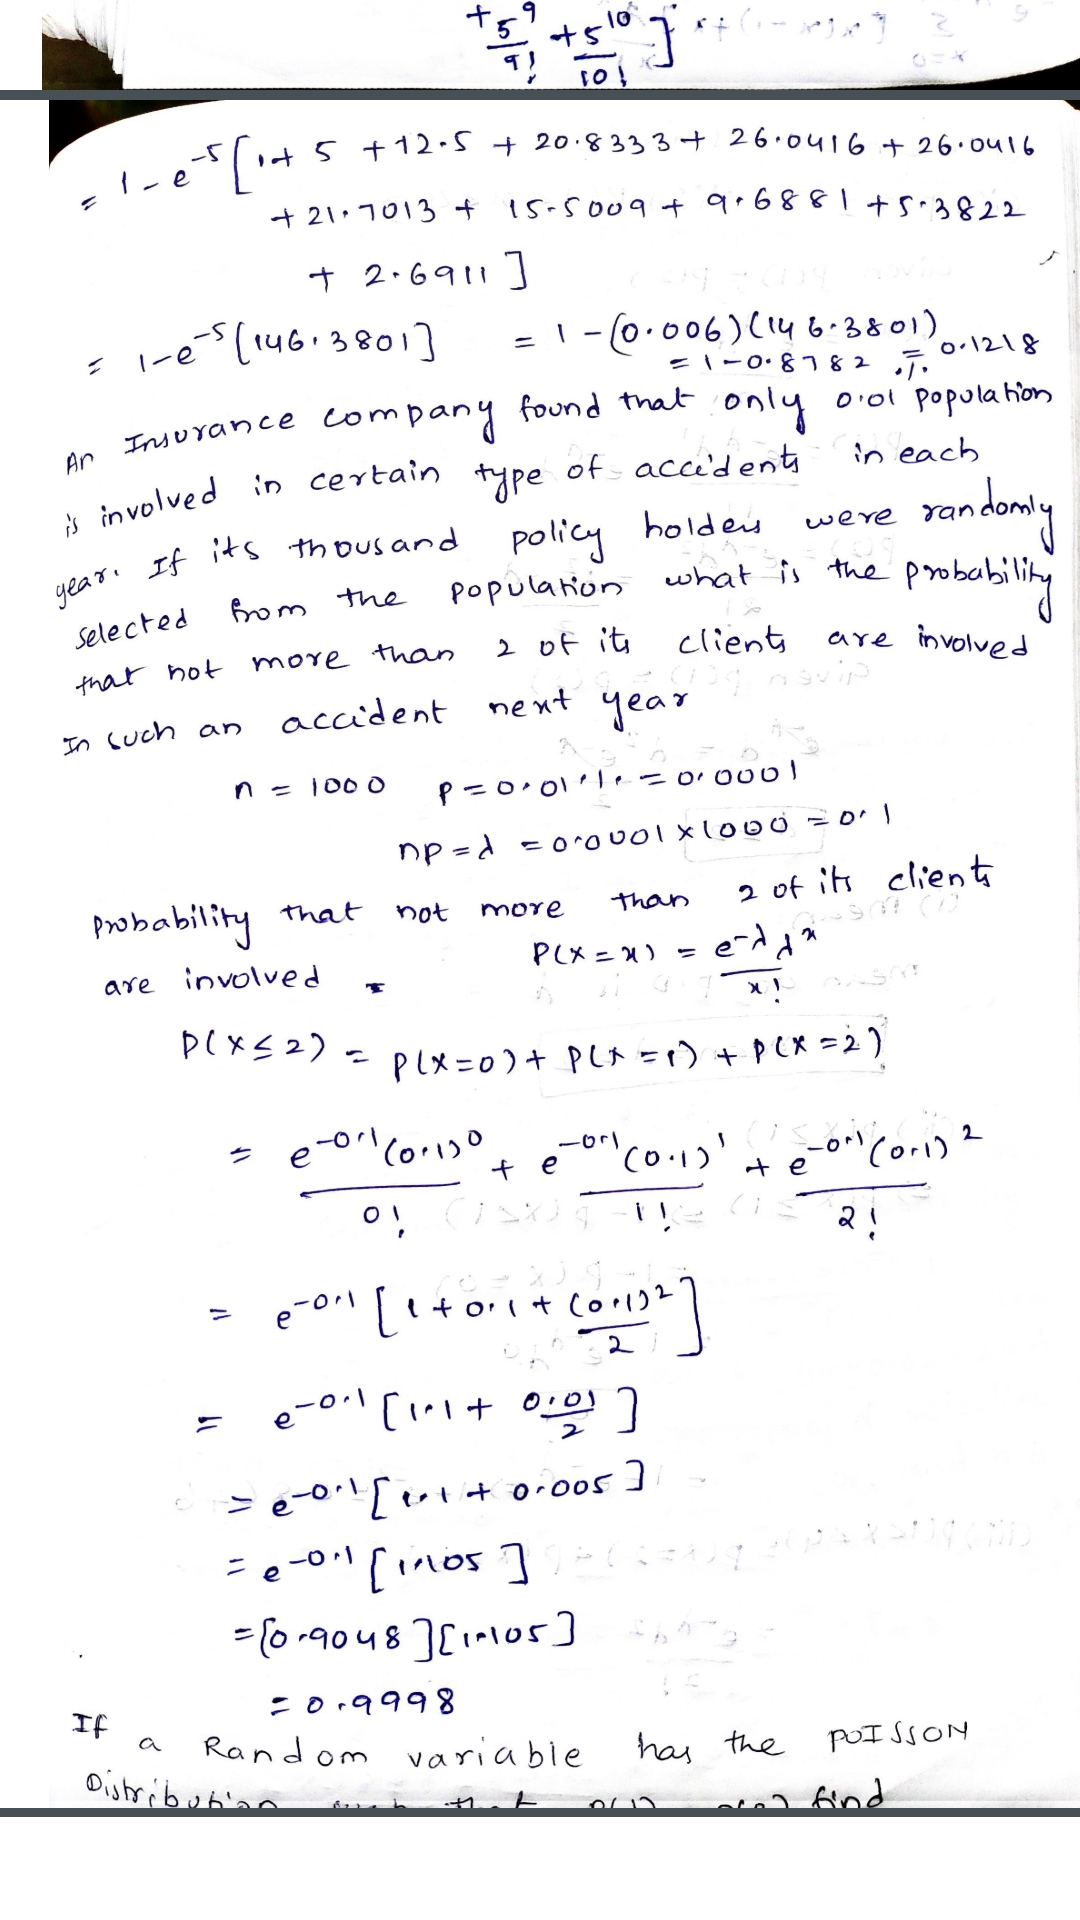 + 5^9/9! + 5^10/10! ]
= 1-e^-5 [ 1+ 5 + 12.5 + 20.8333 + 26.0416 + 26.0416
+ 21.7013 + 15.5009 + 9.6881 + 5.3822
+ 2.6911 ]
= 1-e^-5 [146.3801] = 1-(0.006)(146.3801)
= 1-0.8782 = 0.1218
An Insurance company found that only 0.01 population
is involved in certain type of accidents in each
year. If its thousand policy holders were randomly
selected from the population what is the probability
that not more than 2 of its clients are involved
In such an accident next year
n = 1000 p = 0.01 % = 0.0001
np = λ = 0.0001 x 1000 = 0.1
Probability that not more than 2 of its clients
are involved P(X = x) = e^-λ λ^x / x!
P(X ≤ 2) = P(X=0) + P(X=1) + P(X=2)
= e^-0.1 (0.1)^0 / 0! + e^-0.1 (0.1)^1 / 1! + e^-0.1 (0.1)^2 / 2!
= e^-0.1 [ 1 + 0.1 + (0.1)^2 / 2 ]
= e^-0.1 [ 1.1 + 0.01/2 ]
= e^-0.1 [ 1.1 + 0.005 ]
= e^-0.1 [ 1.105 ]
= [0.9048] [1.105]
= 0.9998
If a Random variable has the POISSON
Distribution such that find